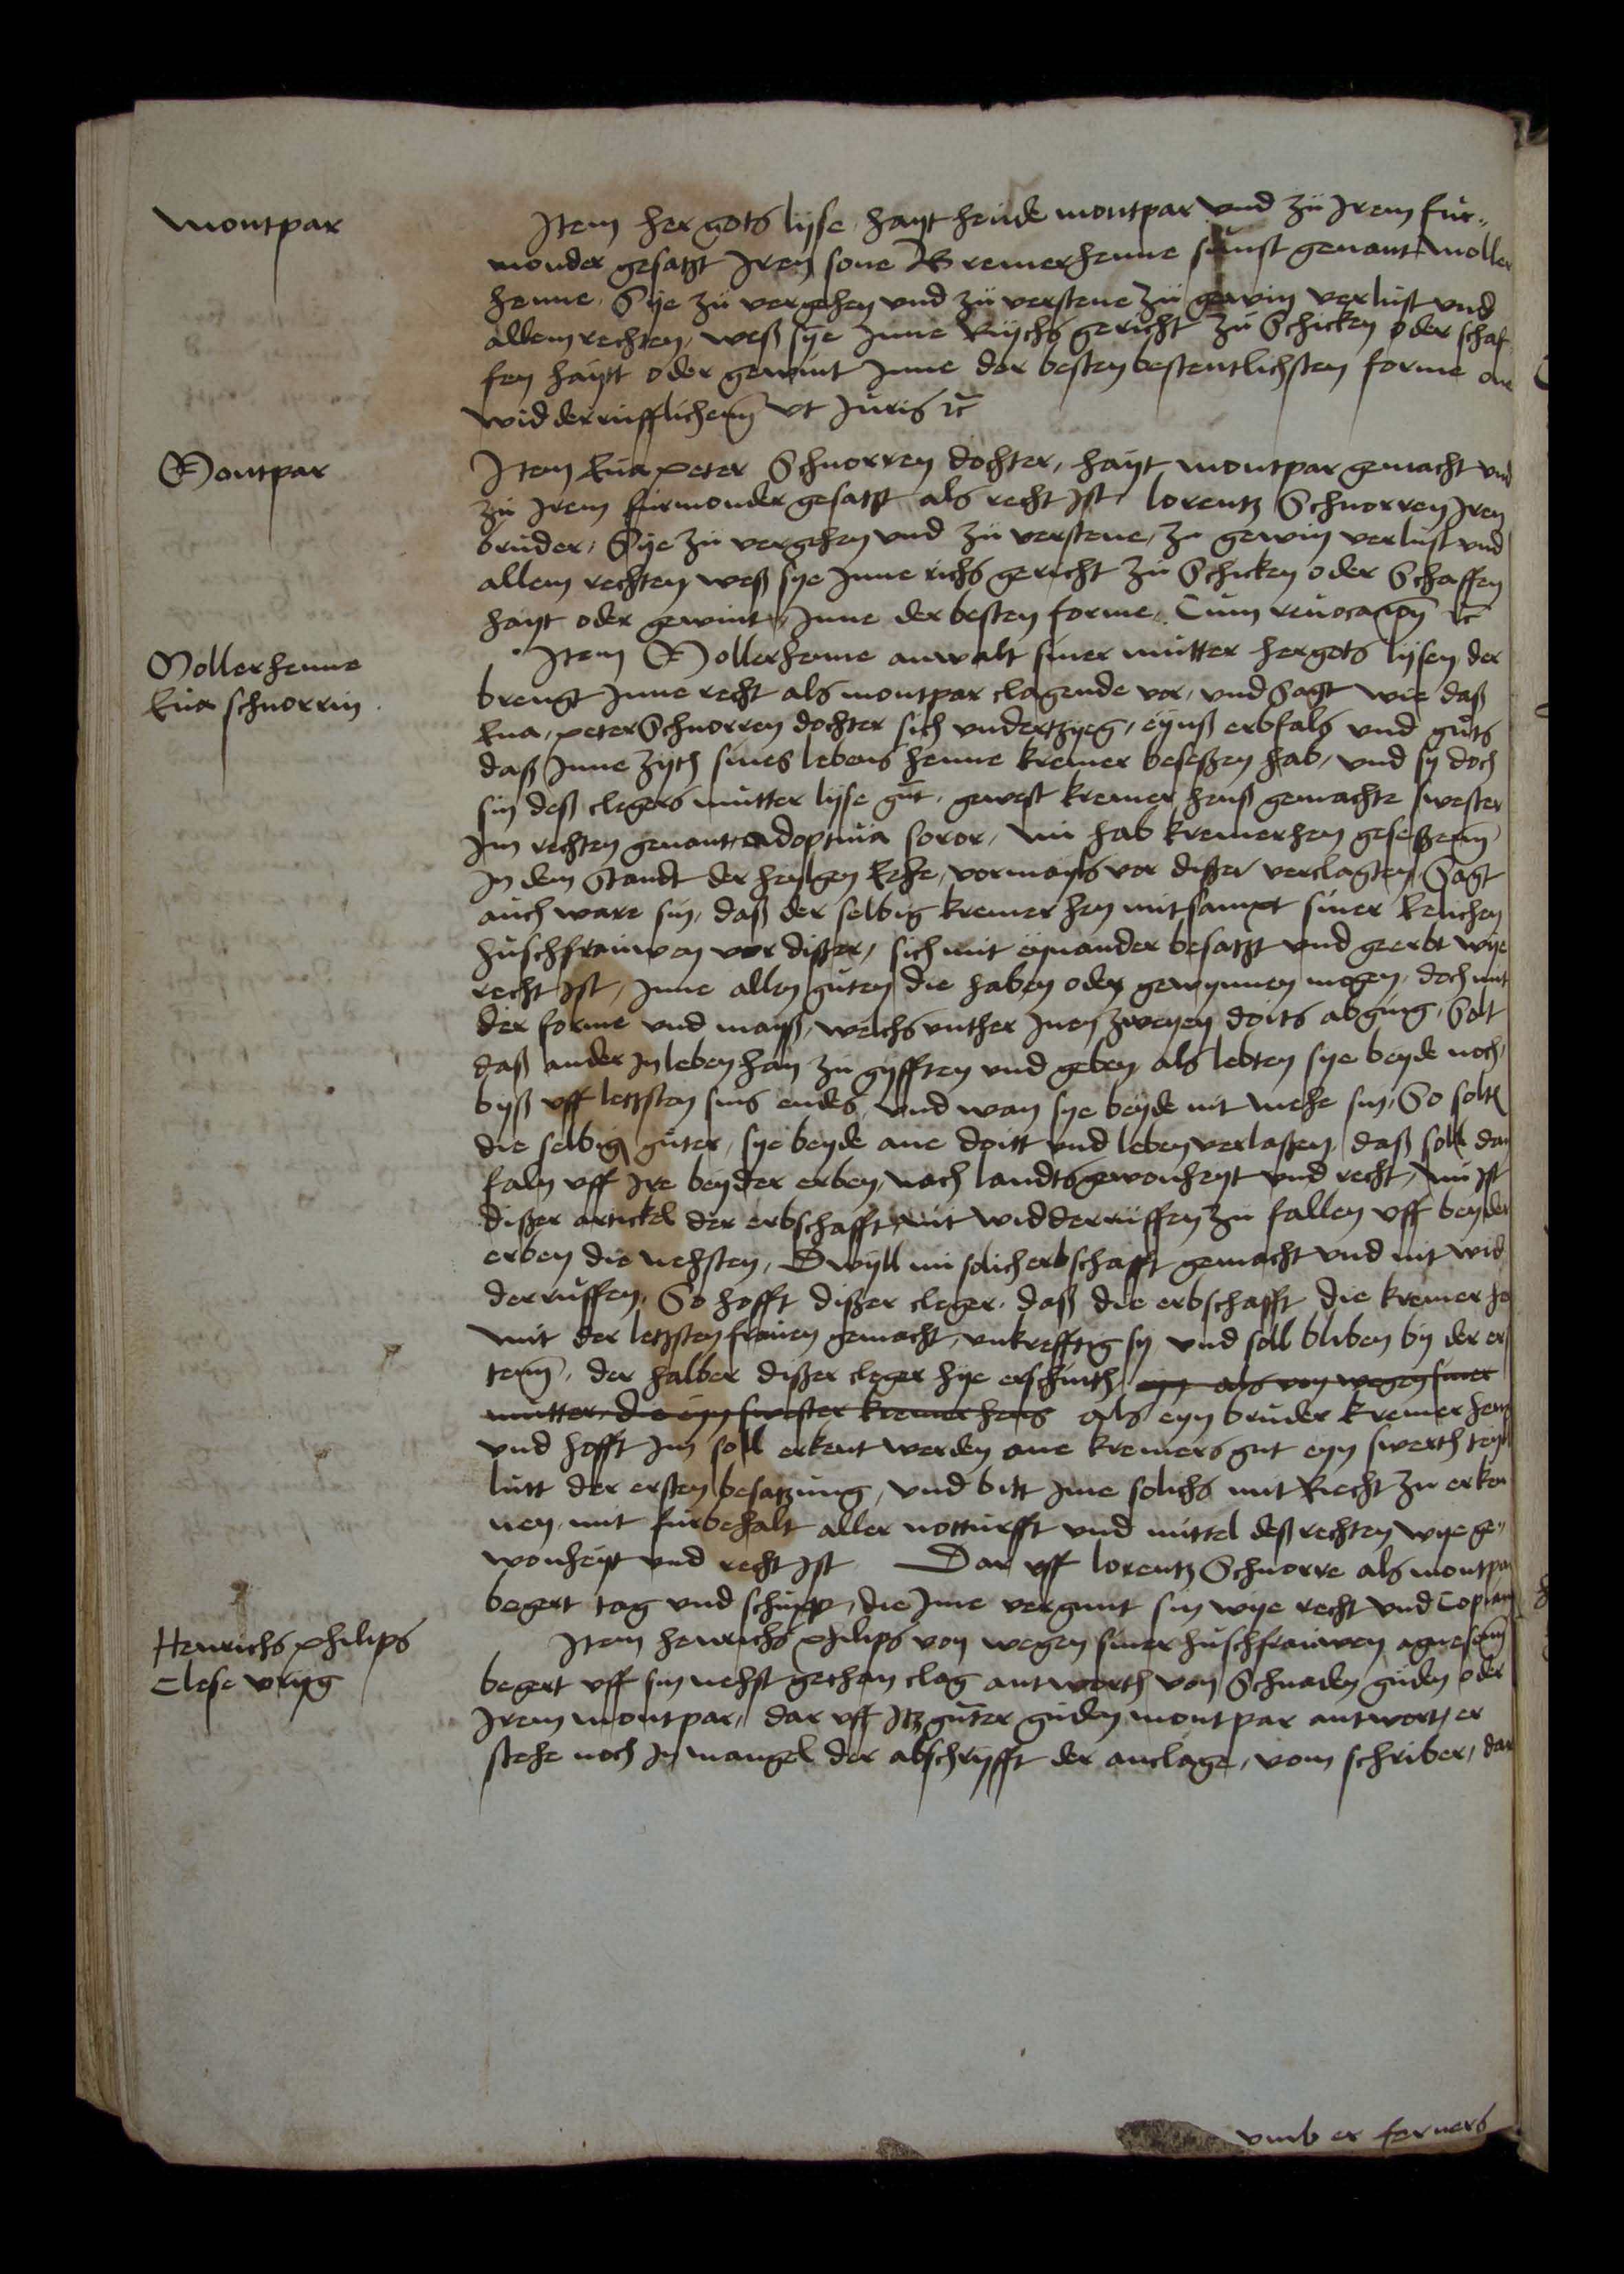 Montpar
Item her gots lyse hayt heude montpar vnd zu Irem fur„
monder gesatzt Iren sone Kremerhenne sunst genant Moller
henne, Sye zu vergehen vnd zu verstene zu gewin verlust vnd
allem rechten, weß sye Inne Rychs gericht zu Schicken oder schaf
fen haytt oder gewint Inne der besten bestentlichsten forme ane
widderrufflichenn vt Juris ꝛc
Montpar
Item Eua peter Schnorren dochter, hayt montpar gemacht vnd
zu Irem furmonder gesatzt als recht Ist, lorentz Schnorren Iren
bruder, Sye zu vergehen vnd zu verstene, zu gewin verlust vnd
allem rechten weß sye Inne richs gericht zu Schicken oder Schaffen
hayt oder gewint, Inne der besten forme. Cum reuocacion ꝛc
Mollerhenne
Eua schnorrin
Item Mollerhenne anwalt siner mutter hergots lysen der
brengt Inne recht als montpar clagende vor, vnd Sagt wie daß
Eua, peter Schnorren dochter sich vndertzyeg, eynß erbfals vnd guts
daß Inne zyth sines lebens henne kremer beseßen hab, vnd sy doch
sin deß clegers mutter lyse gut, gewest kremer henß gemachte swester
Im rechten genant adoptiua soror, nu hab kremerhen geseßenn
In dem Standt der heylgen Eehe, vormayls vor dißer verclagten, Sagt
auch ware sin, daß der selbig kremer hen mitsampt siner Eelichen
huschfrauwen vor dißer, sich mit eynander besatzt vnd geerbt wye
recht Ist, Inne allen guten die haben oder gewynnen mogen, doch mit
der forme vnd mayß, welchs vnther Inen zweyen doits abging, Solt
daß ander In leben han zu gyfften vnd geben als lebten sye beyde noch,
byß vff letzsten sins endes, vnd wan sye beyde nit mehe sin, So solt
die selbig guter, sye beyde ane doitt vnd leben verlaßen, daß solt dan
faln vff Ire beyder erben, nach landtsgewonheyt vnd recht, nu Ist
dißer artickel der erbschafft nit widderruffen zu fallen vff beyder
erben die nehsten, Dwyll nu solich erbschafft gemacht vnd nit wid
derruffen, So hofft dißer cleger, daß die erbschafft die kremer he
mit der letzsten frauen gemacht, vnkrefftig sy vnd soll bliben by der ers
tenn, der halber dißer cleger hye erschinth, eyn als von wegen siner
mutter, die eyn swester kremer hens als eyn bruder kremer hens
vnd hofft Im soll erkent werden ane kremers gut eyn swerth teyl
lutt der ersten besatzung, vnd bitt Ime solichs mit Recht zu erken
nen, mit furbehalt aller notturfft vnd mittel deß rechten wye ge„
wonheyt vnd recht Ist. Dar vff lorentz Schnorre als montpar
begert tag vnd schupp, die Ime vergunt sin wye recht vnd Copiam
Henrichs philips
Clese vryg
Item henrichs philips von wegen siner huschfrauwen agnesenn
begert vff sin nehst gethan clag antworth von Schnaden guden oder
Irem montpar, dar vff Itz guter guden montpar antwort, er
stehe noch In mangel der abschryfft der anclage, vom schriber, dar
vmb er ferners